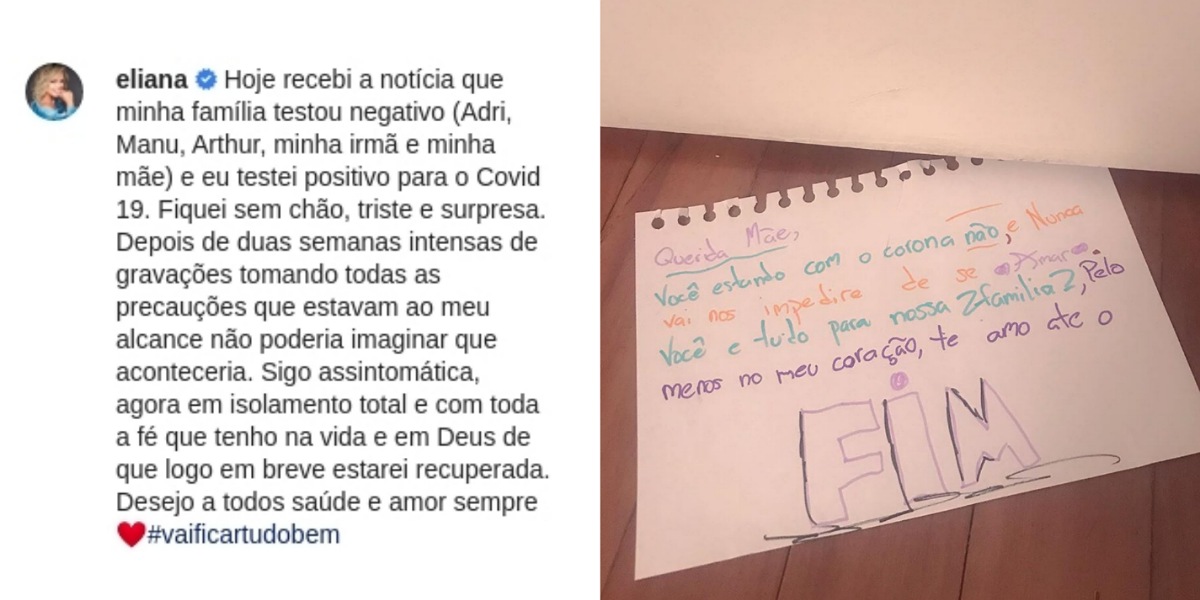 eliana Hoje recebi a notícia que
minha família testou negativo (Adri,
Manu, Arthur, minha irmã e minha
mãe) e eu testei positivo para o Covid
19. Fiquei sem chão, triste e surpresa.
Depois de duas semanas intensas de
gravações tomando todas as
precauções que estavam ao meu
alcance não poderia imaginar que
aconteceria. Sigo assintomática,
agora em isolamento total e com toda
a fé que tenho na vida e em Deus de
que logo em breve estarei recuperada.
Desejo a todos saúde e amor sempre
❤️#vaificartudobem
Querida Mãe,
Você estando com o corona não, e Nunca
vai nos impedire de se Amar
Você e tudo para nossa familia, Pelo
menos no meu coração, te amo ate o
FIM